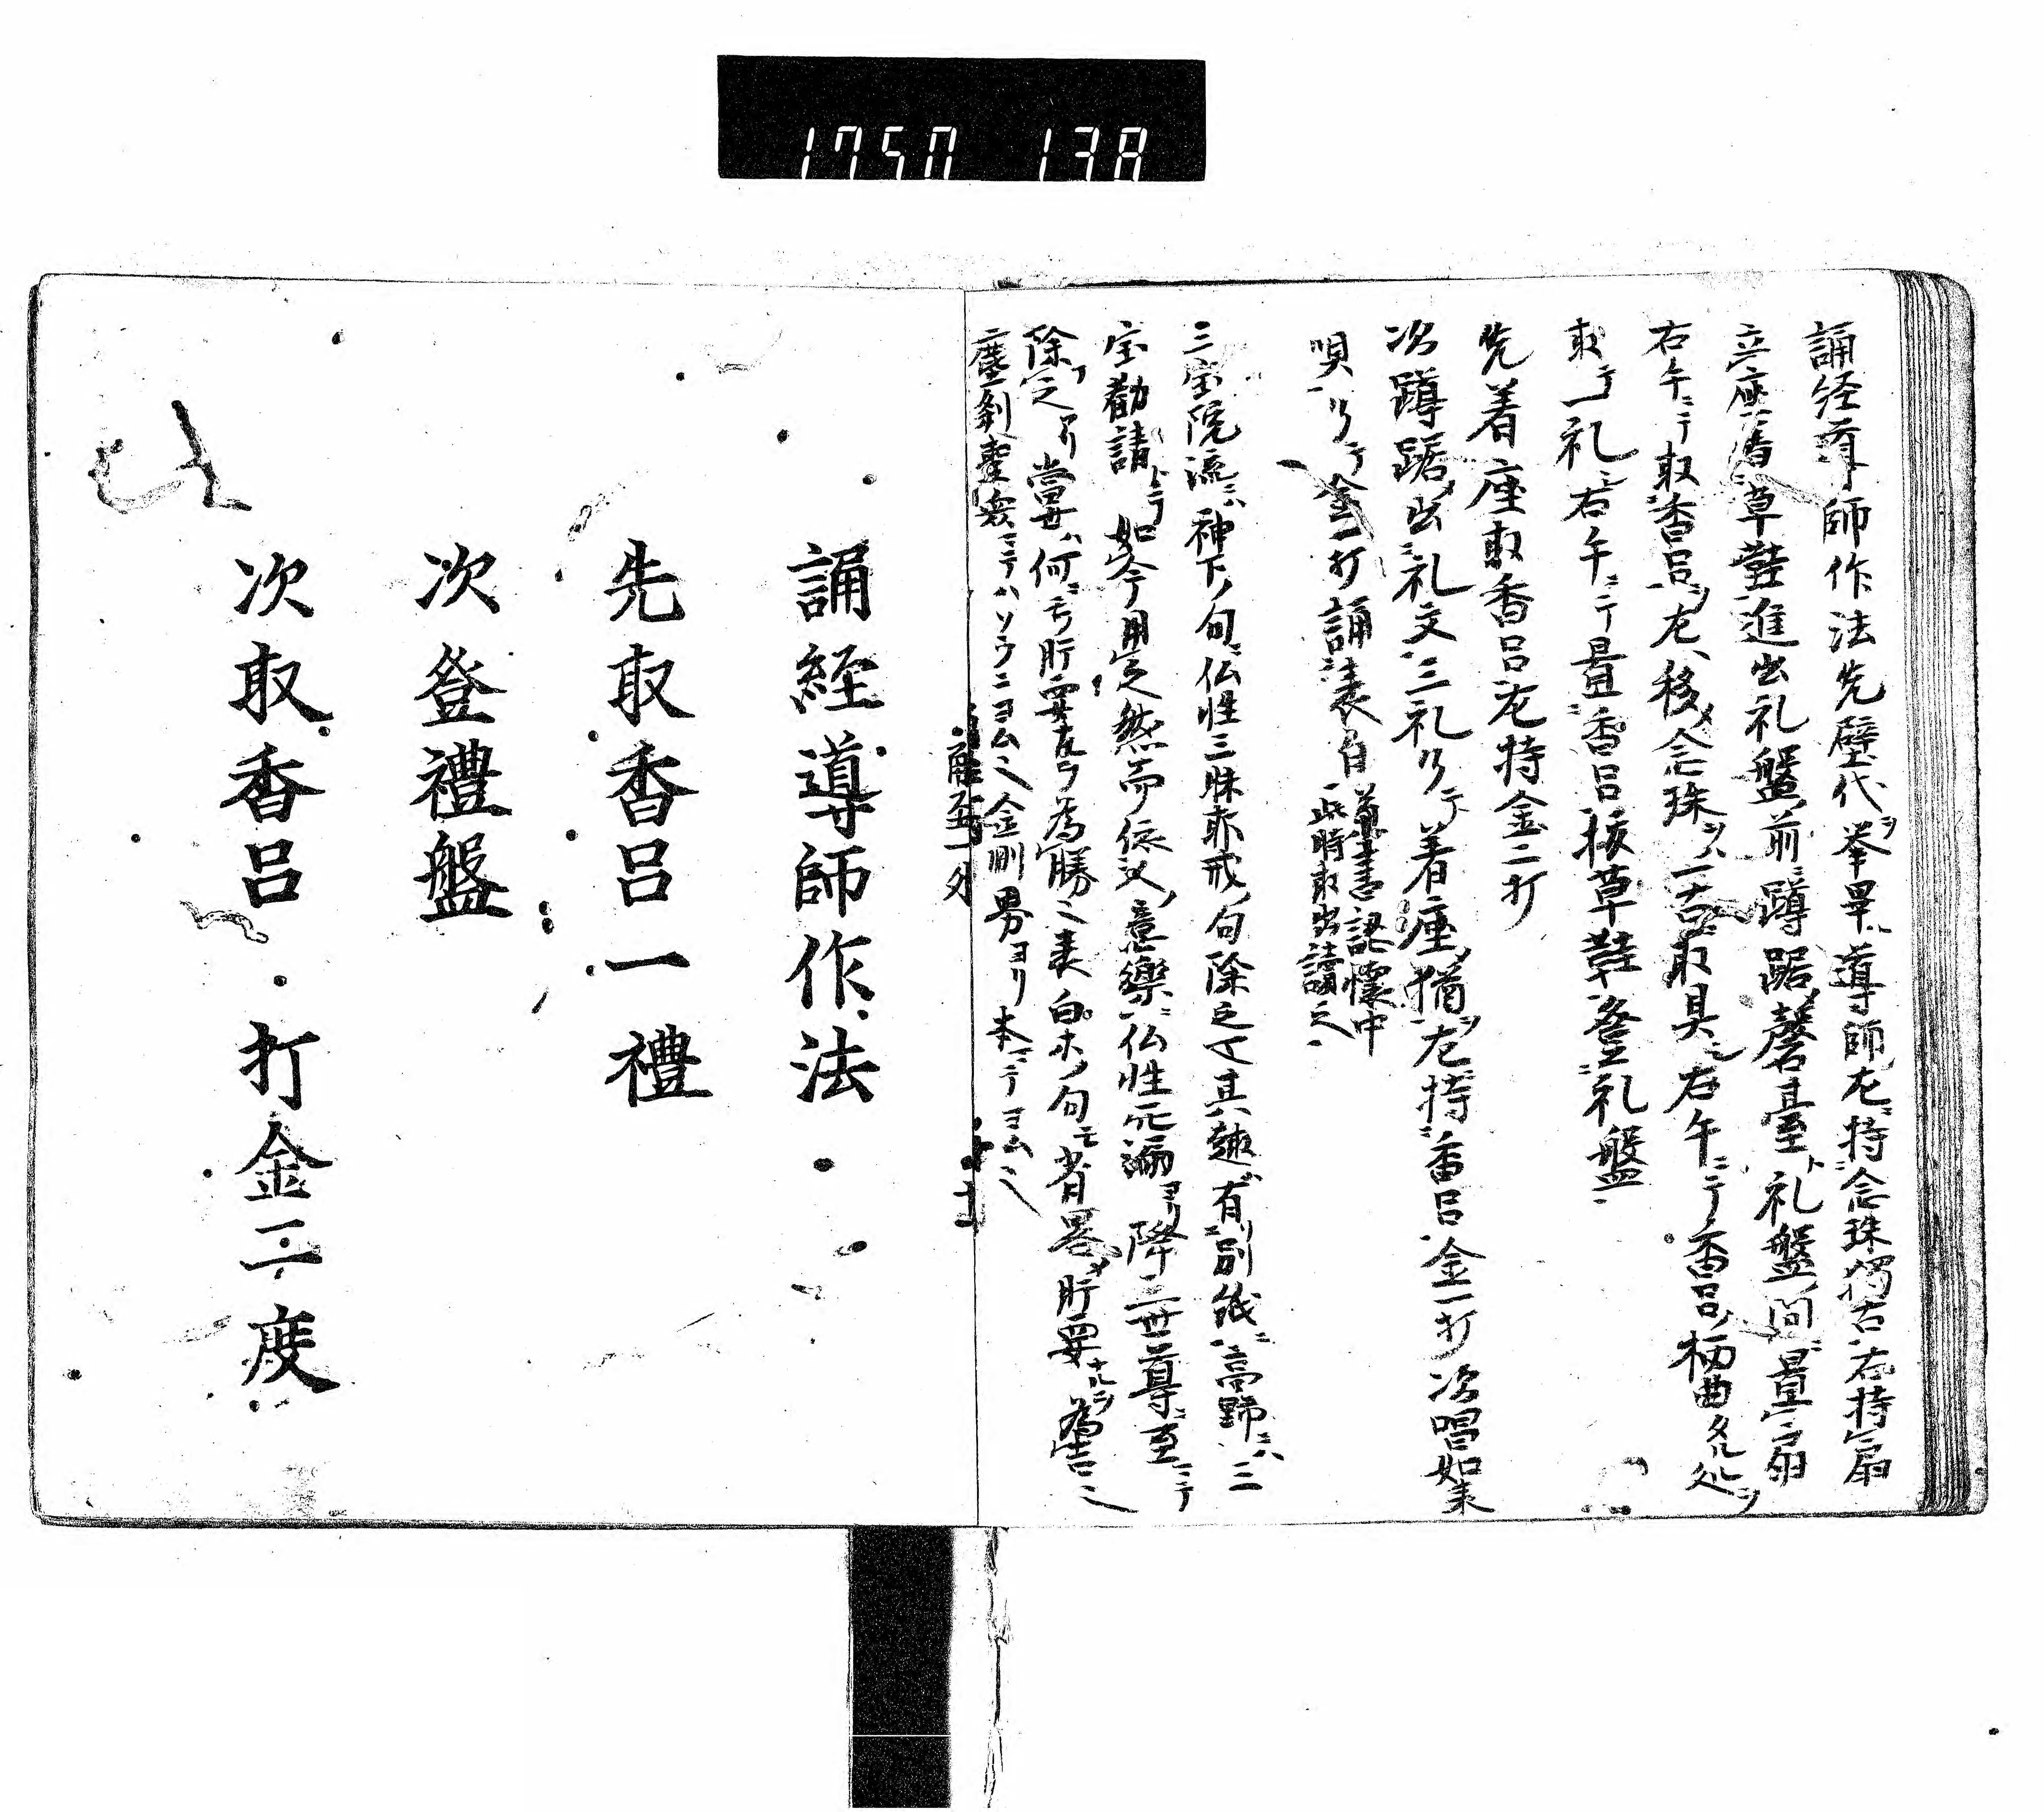 1750 138
誦経導師作法先壁代ヲ挙畢ハ導師左持念珠獨古右持扇
立座着草鞋進出礼盤前蹲踞磬臺ト礼盤間置扇
右手ニテ取香呂ヲ左移念珠ヲ一古取具シ右手ニテ香呂柄曲タル処ヲ
取テ一礼右手ニテ置香呂抜草鞋登礼盤
先着座取香呂左持金二打
次蹲踞出礼文三礼リテ着座猶左持香呂金一打次唱如来
唄リテ金一打誦表白
兼書認懐中
此時取出讀之
三宝院流ニハ神下ノ句仏性三昧耶戒ノ句除之其趣有別紙高野ニハ三
宝勧請トテ如今用之然而依文意樂仏性ヨリ降三世尊至ニテ
除之アリ當世ハ何ニモ肝要ヲ為勝表白ホノ句モ省畧肝要ナルヲ為吉
塵刹聖衆ニテハソウニヨム金剛界ヨリ本ニテヨム
誦経導師作法
先取香呂一禮
次登禮盤
次取香呂打金二度